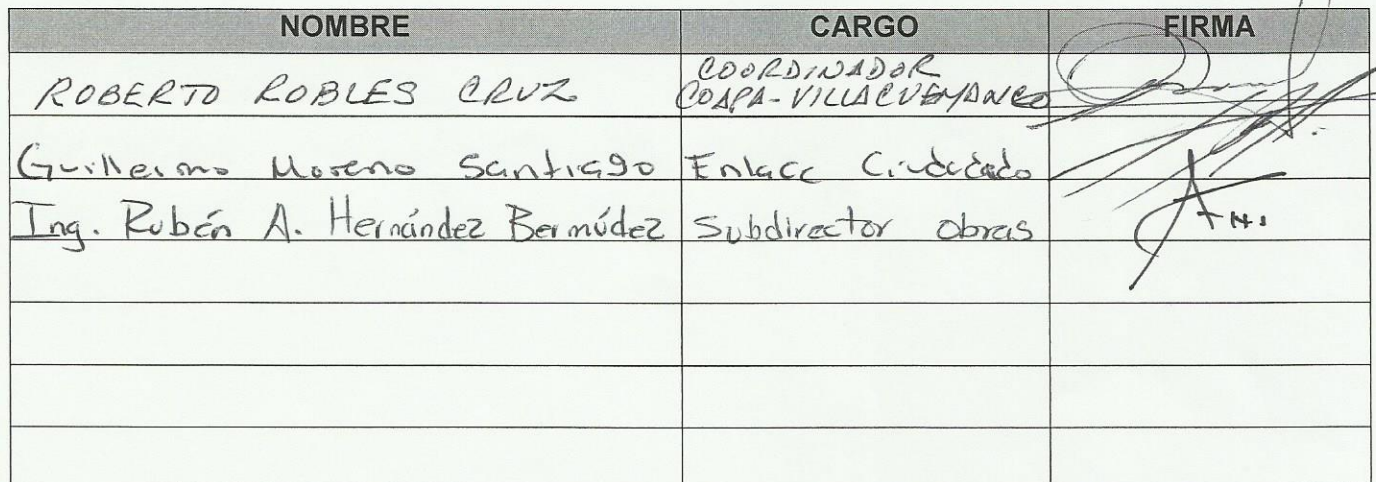 NOMBRE CARGO FIRMA
ROBERTO ROBLES CRUZ COORDINADOR
COAPA-VILLACUEMANCO
Guillermo Moreno Santiago Enlace
Ing. Rubén A. Hernández Bermúdez Subdirector obras